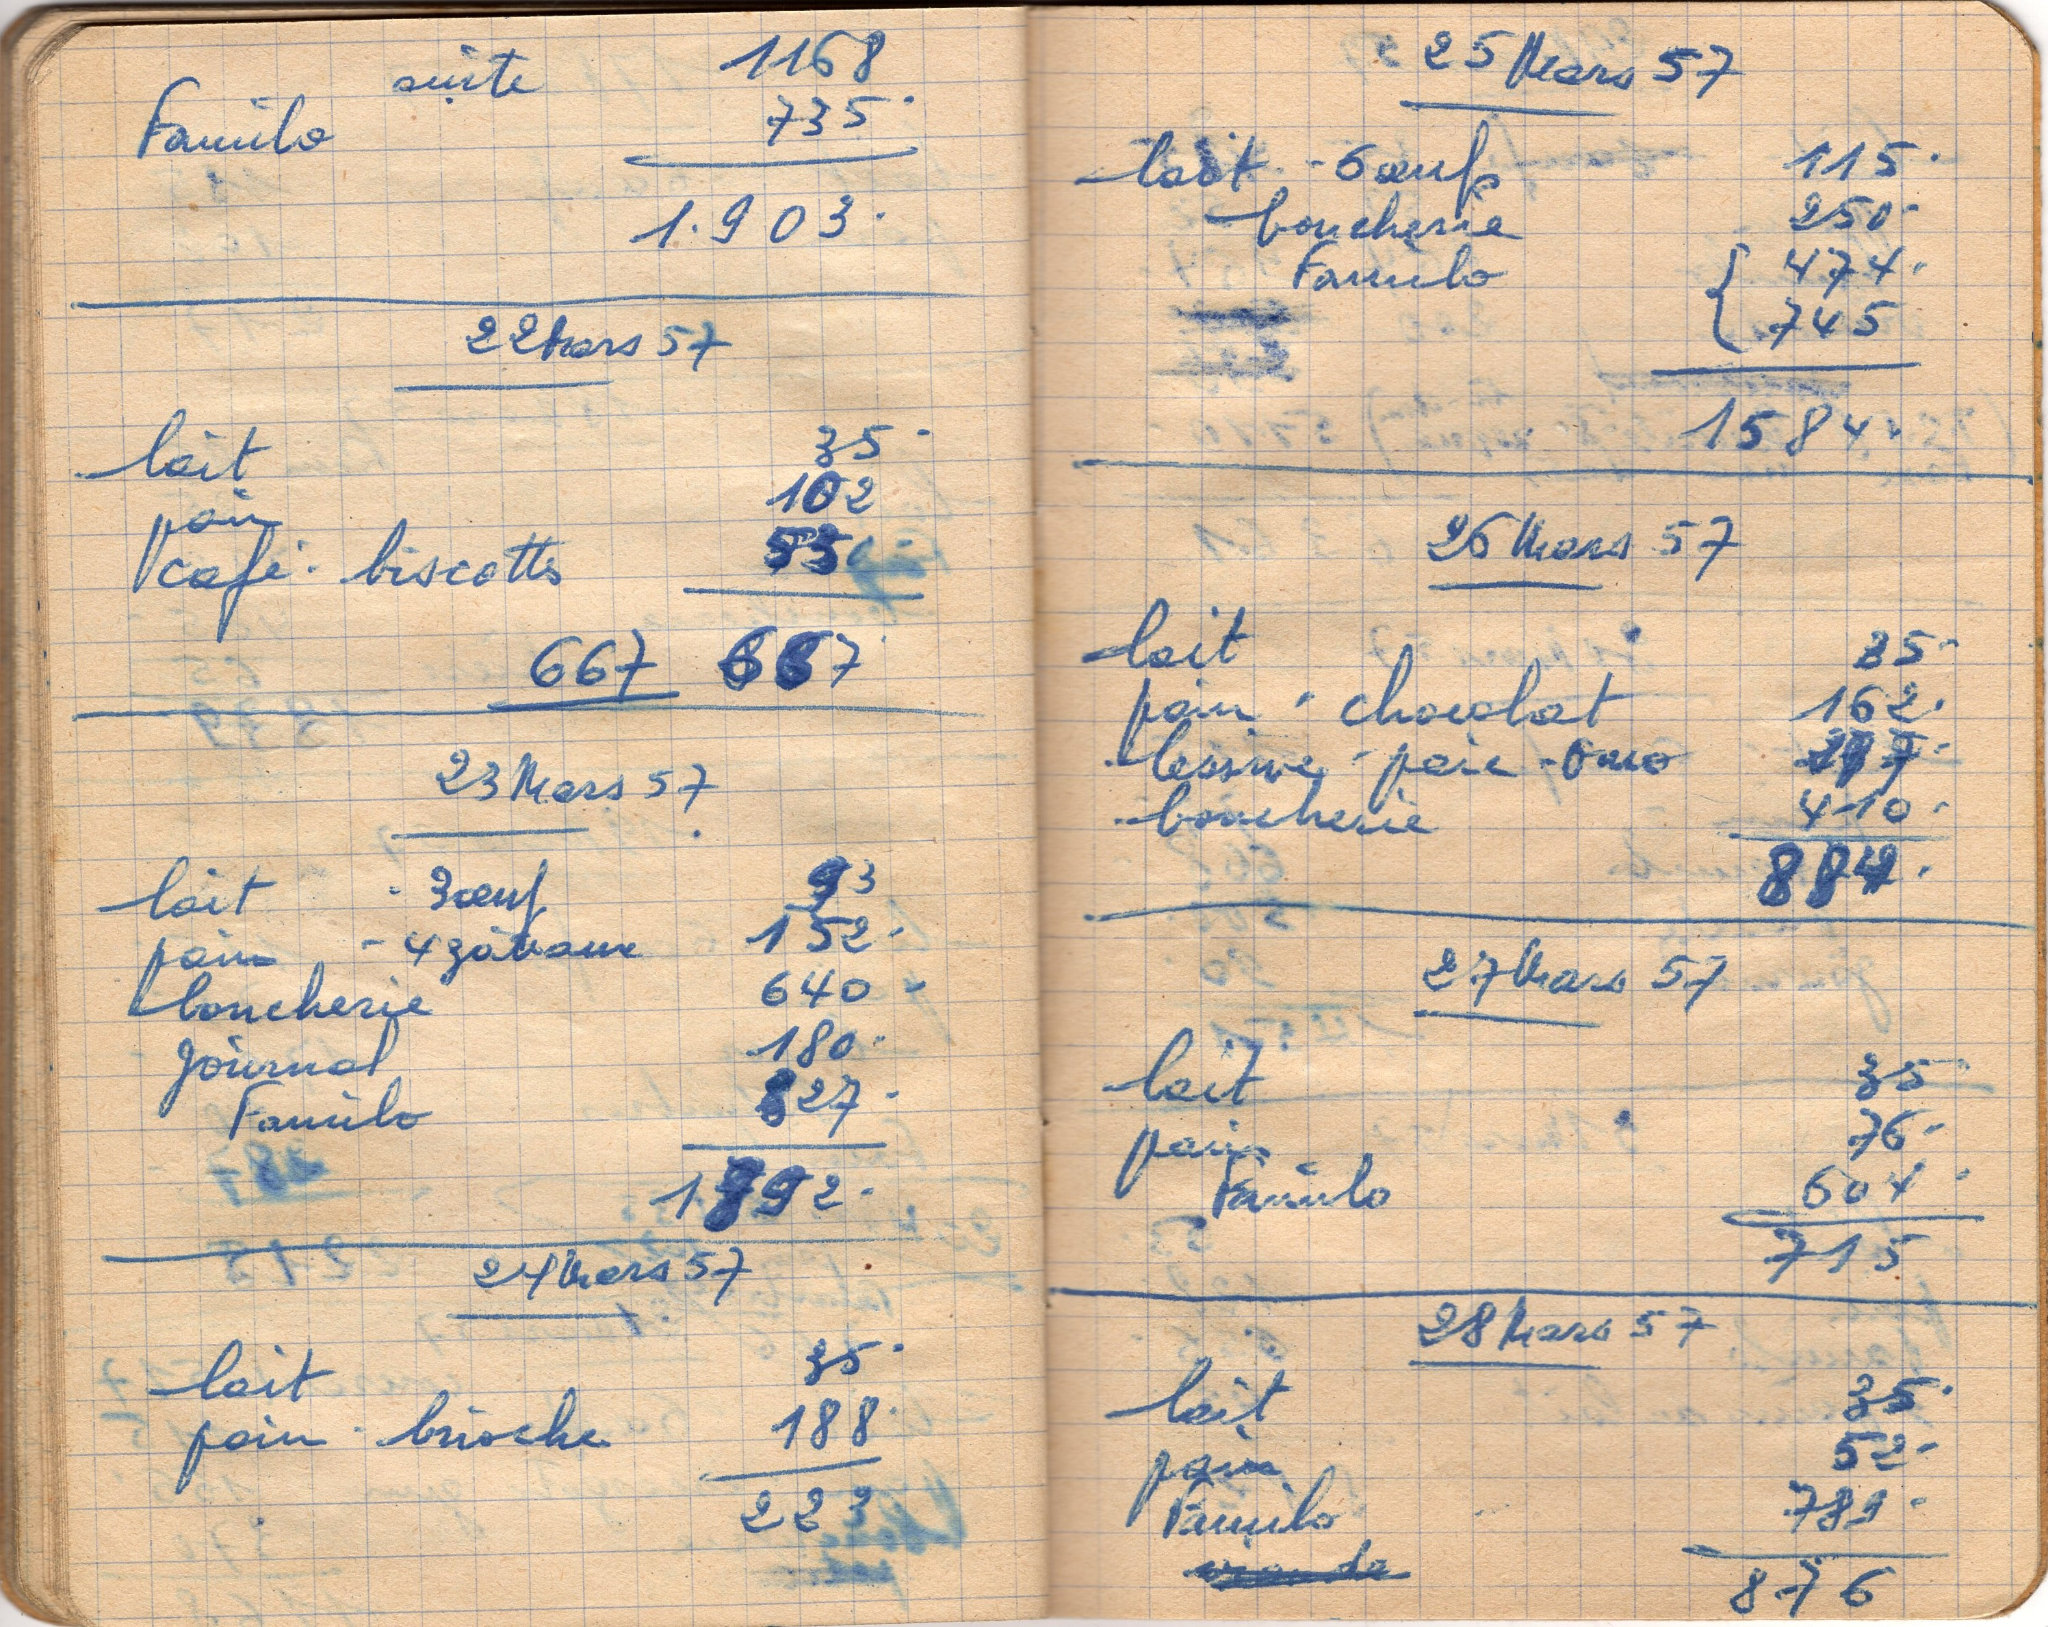 suite 1168
Familo 735
1.903.
22 Mars 57
lait 35
pain 102
café. biscottes 530
667 667
23 Mars 57
lait - 3 œuf 93
pain - 4 gâteaux 152
boucherie 640
journal 180
Familo 827
1892
24 Mars 57
lait 35
pain - brioche 188
223
25 Mars 57
lait - 6 œufs 115
boucherie 250
Familo { 474
745
1584
26 Mars 57
lait 35
pain - chocolat 162
lessive - paic - Omo
boucherie 410
27 Mars 57
lait 35
pain 76
Familo 604
715
28 Mars 57
lait 35
pain 52
Familo 789
876